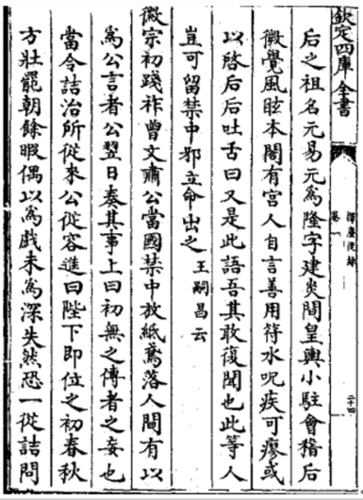 欽定四庫全書
卷一
揮麈後錄
二十四
后之祖名元易元為隆字建炎間皇輿小駐會稽后
微覺風眩本閤有宫人自言善用符水呪疾可瘳或
以啓后后吐舌曰又是此語吾其敢復聞也此等人
豈可留禁中邪立命出之王嗣昌云
徽宗初踐祚曾文肅公當國禁中放紙鳶落人間有以
為公言者公翌日奏其事上曰初無之傳者之妄也
當令詰治所從來公從容進曰陛下即位之初春秋
方壯罷朝餘暇偶以為戲未為深失然恐一從詰問